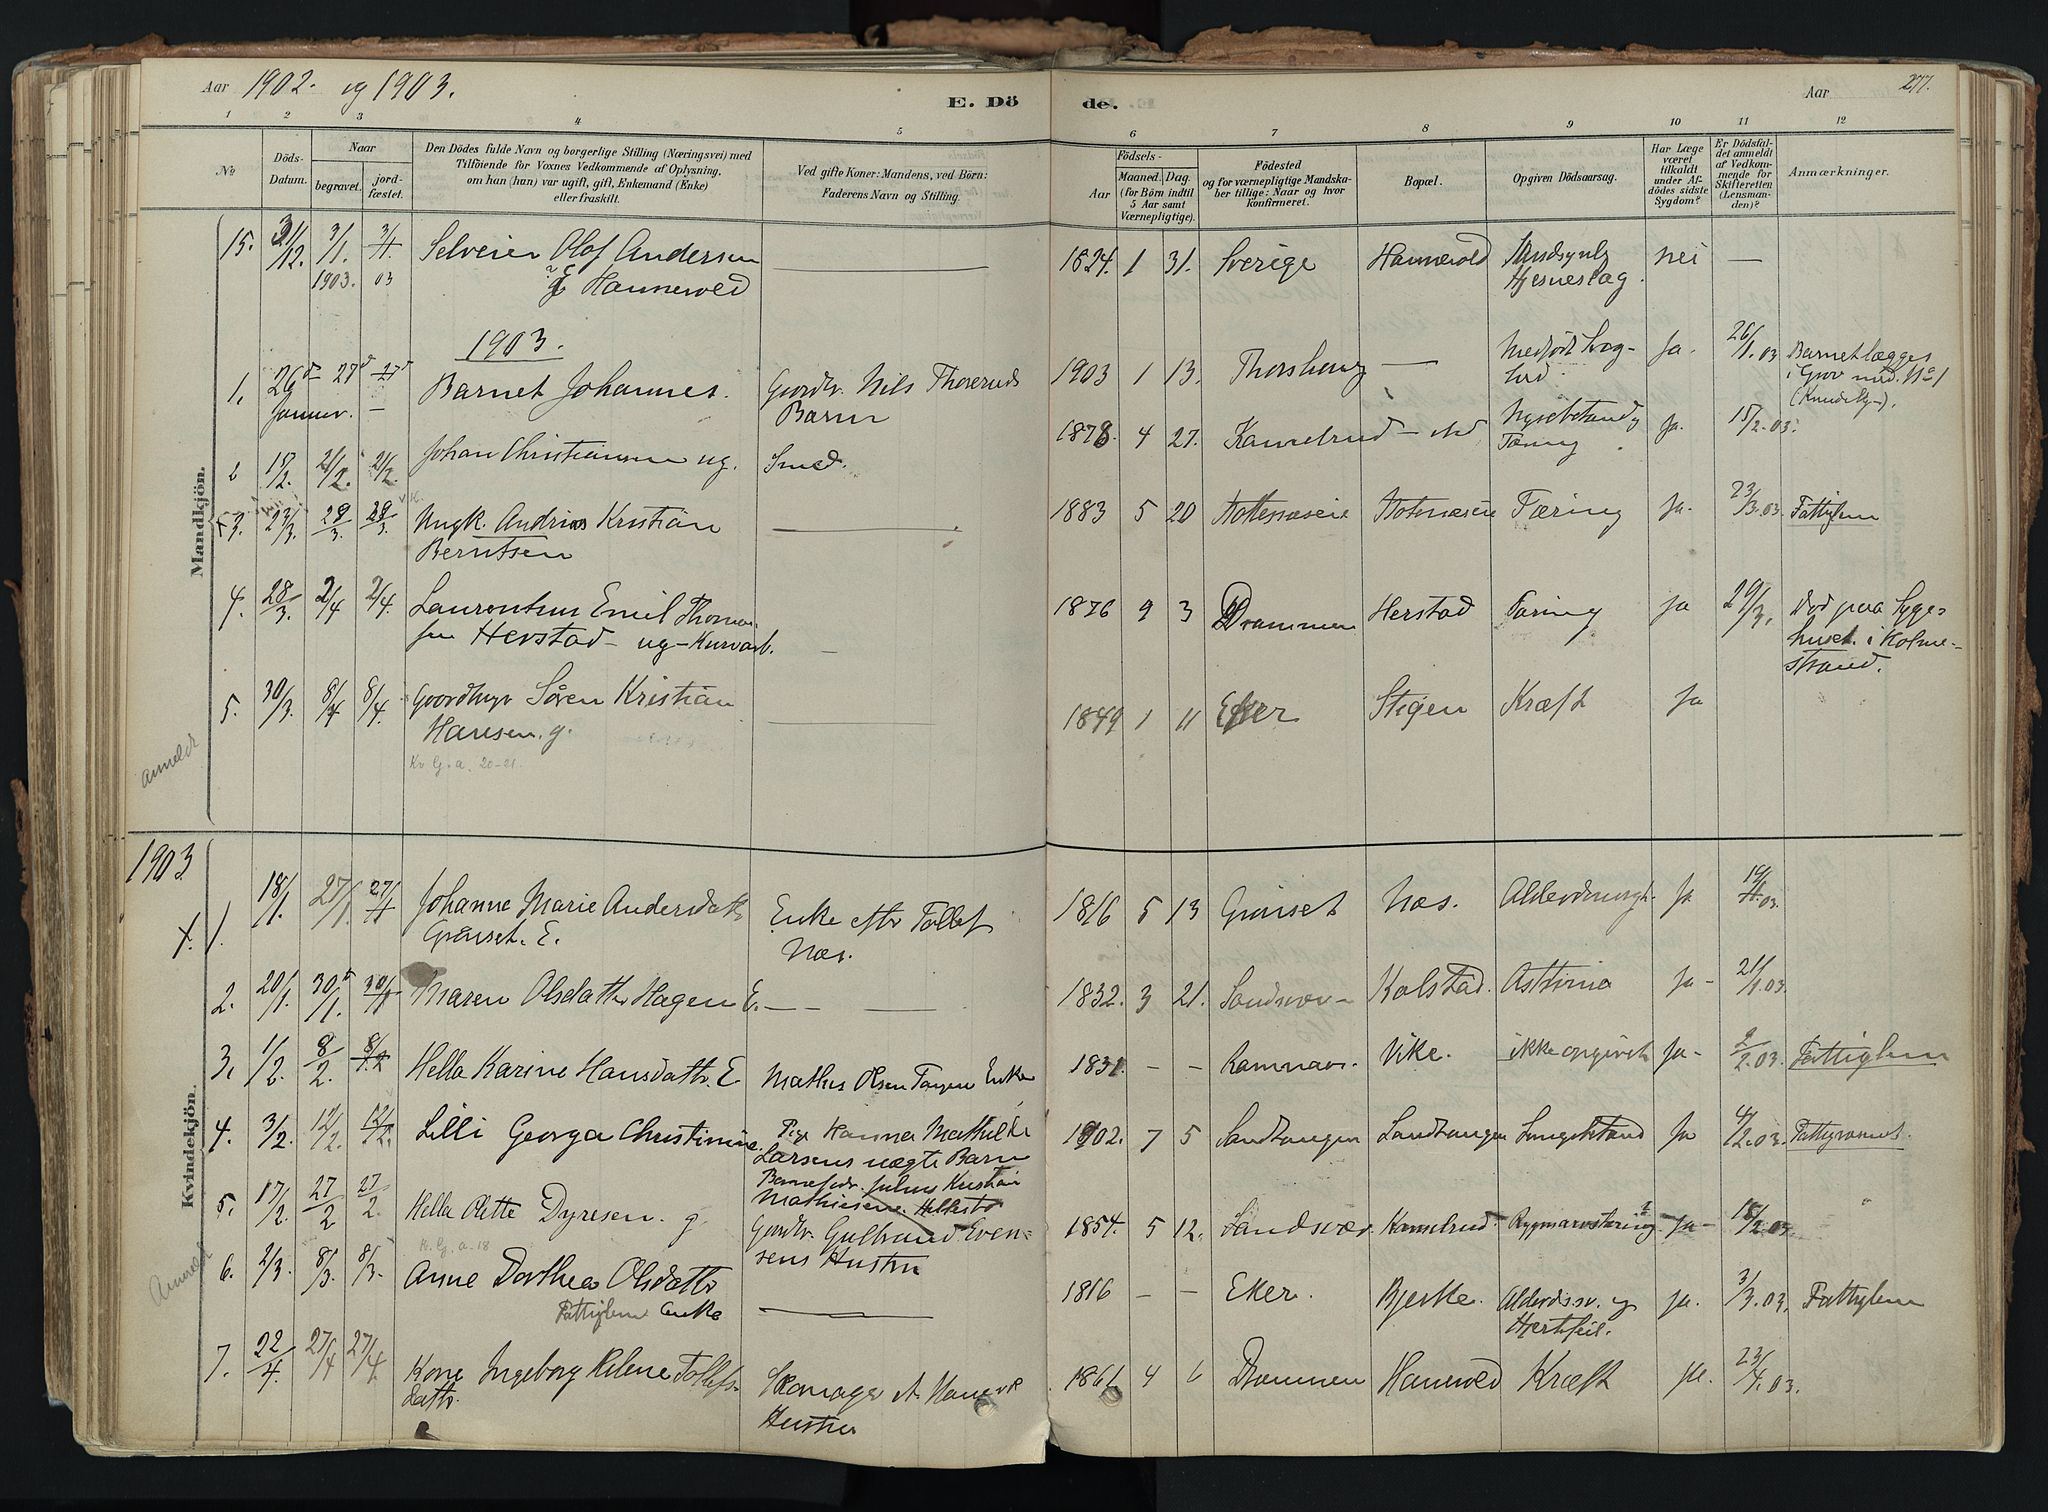 Aar 1902. og 1903.
E. Dö
de.
Aar
277.
1 2 3 4 5 6 7 8 9 10 11 12
No.
Döds-
Datum.
Naar
begravet.
jord-
fæstet.
Den Dödes fulde Navn og borgerlige Stilling (Næringsvei) med
Tilföiende for Voxnes Vedkommende af Oplysning,
om han (hun) var ugift, gift, Enkemand (Enke)
eller fraskilt.
Ved gifte Koner: Mandens, ved Börn:
Faderens Navn og Stilling.
Födsels-
Aar
Maaned. Dag.
(for Börn indtil
5 Aar samt
Værnepligtige).
Födested
og for værnepligtige Mandska-
ber tillige: Naar og hvor
konfirmeret.
Bopæl.
Opgiven Dödsaarsag.
Har Læge
været
tilkaldt
under Af-
dödes sidste
Sygdom?
Er Dödsfal-
det anmeldt
af Vedkom-
mende for
Skifteretten
(Lensman-
den)?
Anmærkninger.
Mandkjön.
15. 31/12. 3/1. 1903. 3/1 03 Selveier Olof Andersen
E Hannevold
1824. 1 31. Sverige Hannevold Sandsynlg
Hjerneslag. nei —
1903.
1. 26d Januar. 27d 27d — Barnet Johannes. Gaardbr. Nils Thoreruds
Barn
1903 1 13. Thorshaug — Medfødt Svag-
hed. Ja. 26/1.03 Barnet lægges
i Grav med No 1
2 15/2. 21/2. 21/2. Johan Christiansen ug. Smed.
1878. 4 27. Kamelrud Nyrebetænd.
Tæring Ja. 15/2.03.
3. 23/3. 29/3 29/3 Ungk. Andrias Kristian
Berntsen
1883 5 20 Tæring Ja. 23/3.03. Fattiglem
4. 28/3. 2/4 2/4. Laurentius Emil Thomas-
sen Herstad - ug - Kurvarb.
1876 9 3 Drammen Herstad Tæring ja 29/3. Død paa Syge-
huset i Holme-
strand.
5. 30/3. 8/4 8/4. Gaardbgr Søren Kristian
Hansen. g.
Kv G. a. 20-21.
1849 1 11 Eker Stigen Kræft Ja
Anmeldt
1903
Kvindekjön.
1. 18/1. 27/1. 27/1 Johanne Marie Andersdatter
Grønset. E. Enke efter Tollef
Næs.
1816 5 13 Grønset Næs. Alderdomssvagh. Ja 19/1.03.
2. 20/1. 30/1. 30/1 Maren Olsdatter Hagen E. —
1832. 3 21. Sandsvær - Kolstad. Asthma Ja - 21/1.03.
3. 1/2. 8/2. 8/2 Hella Karine Hansdatter. E. Mathis Olsen Tangen Enke
1831. - - Ramnæs. Vike. ikke opgivet Ja - 2/2.03. Fattiglem
4. 3/2. 12/2. 12/2. Lilli Georga Christinine. Pige Hanna Mathilde
Larsens uægte Barn
Barnefadr. Julius Kristian
Mathiesen Hillestad
1902. 7 5 Sandtangen Sandtangen Lungebetænd Ja 4/2.03. Fattigvæsnet.
5. 17/2. 27/2 27/2. Hella Olette Dyresen. g. Gaardbr. Gulbrand Even-
sens Hustru
K. G. a. 18
1854. 5 12. Sandsvær Kamelrud. Rygmarvstæring? Ja - 18/2.03. "
6. 2/3. 8/3. 8/3. Anne Dorthea Olsdatter
Fattiglem Enke
1816 - - Eker. Bjerke. Alderdssv. og
Hjertefeil. Ja. 3/3.03. Fattiglem
7. 22/4. 27/4 27/4. Kone Ingeborg Helene Tollefs-
datter. Skomager A. Hanevold
Hustru
1861 4 6 Drammen Hanevold Kræft Ja. 23/4.03.
Anmeldt